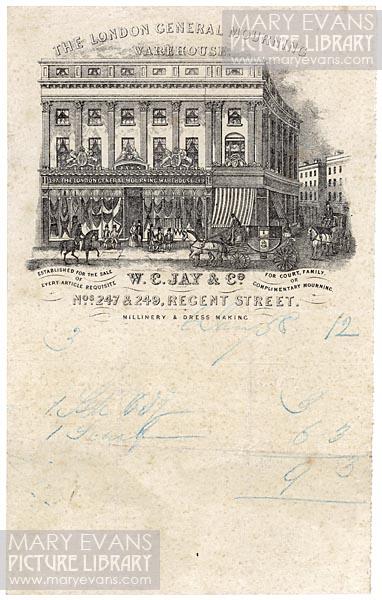 MARY EVANS
PICTURE LIBRARY
www.maryevans.com
THE LONDON GENERAL MOURNING
WAREHOUSE
247 THE LONDON GENERAL MOURNING WAREHOUSE 249
ESTABLISHED FOR THE SALE
OF
EVERY ARTICLE REQUISITE
W. C. JAY & Co
FOR COURT, FAMILY,
OR
COMPLIMENTARY MOURNING.
Nos. 247 & 249, REGENT STREET.
MILLINERY & DRESS MAKING
3 58 12
1
1
6 3
9 3
MARY EVANS
PICTURE LIBRARY
www.maryevans.com
MARY EVANS
PICTURE LIBRARY
www.maryevans.com